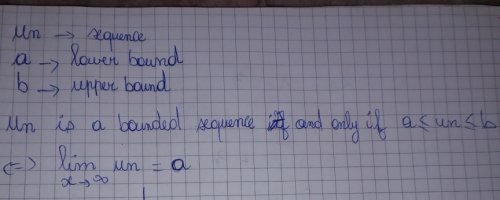 un → sequence
a → lower bound
b → upper bound
un is a bounded sequence if and only if a ≤ un ≤ b
⇔ lim un = a
x → ∞